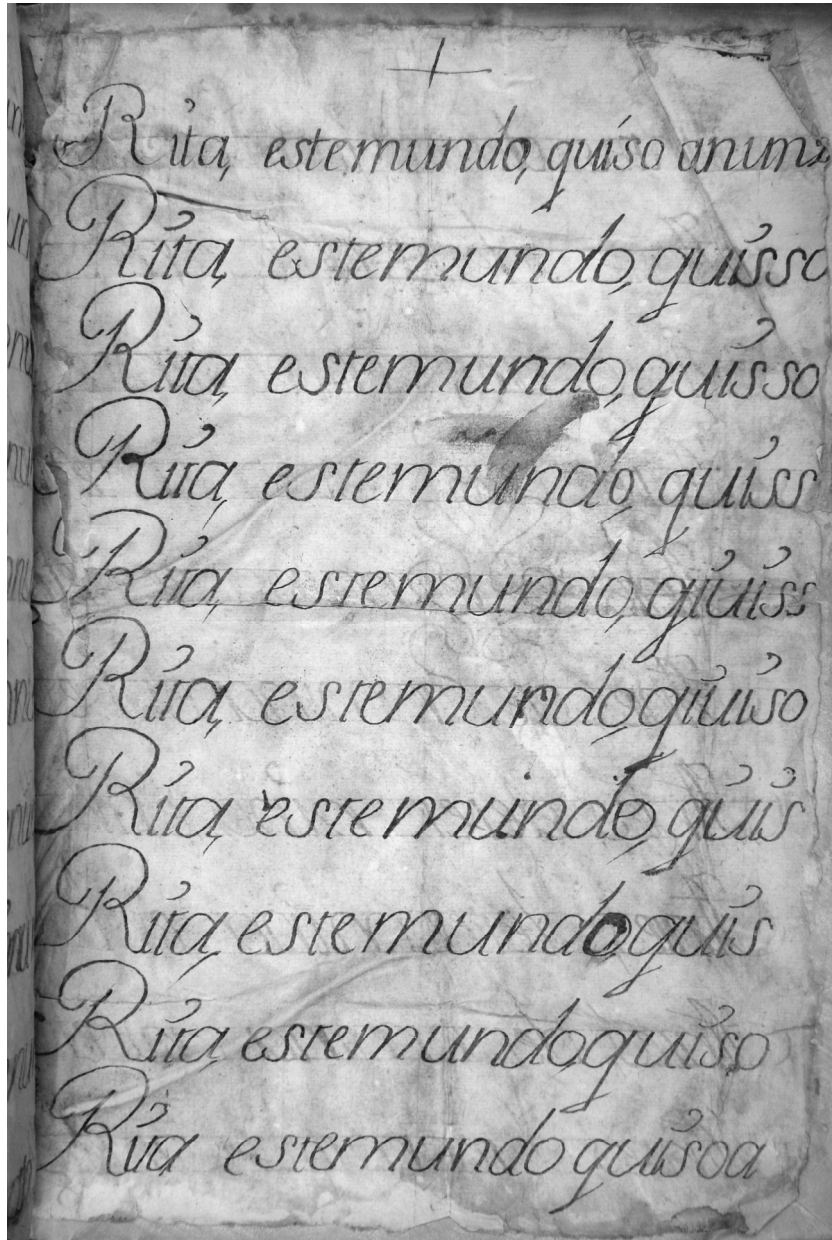 Rita, estemundo, quiso anun
Rita, estemundo, quisso
Rita, estemundo, quisso
Rita, estemundo, quiss
Rita, estemundo, qiuiss
Rita, estemundo, qiuiso
Rita, estemundo, quis
Rita, estemundo quis
Rita estemundo, quiso
Rita estemundo quisoa